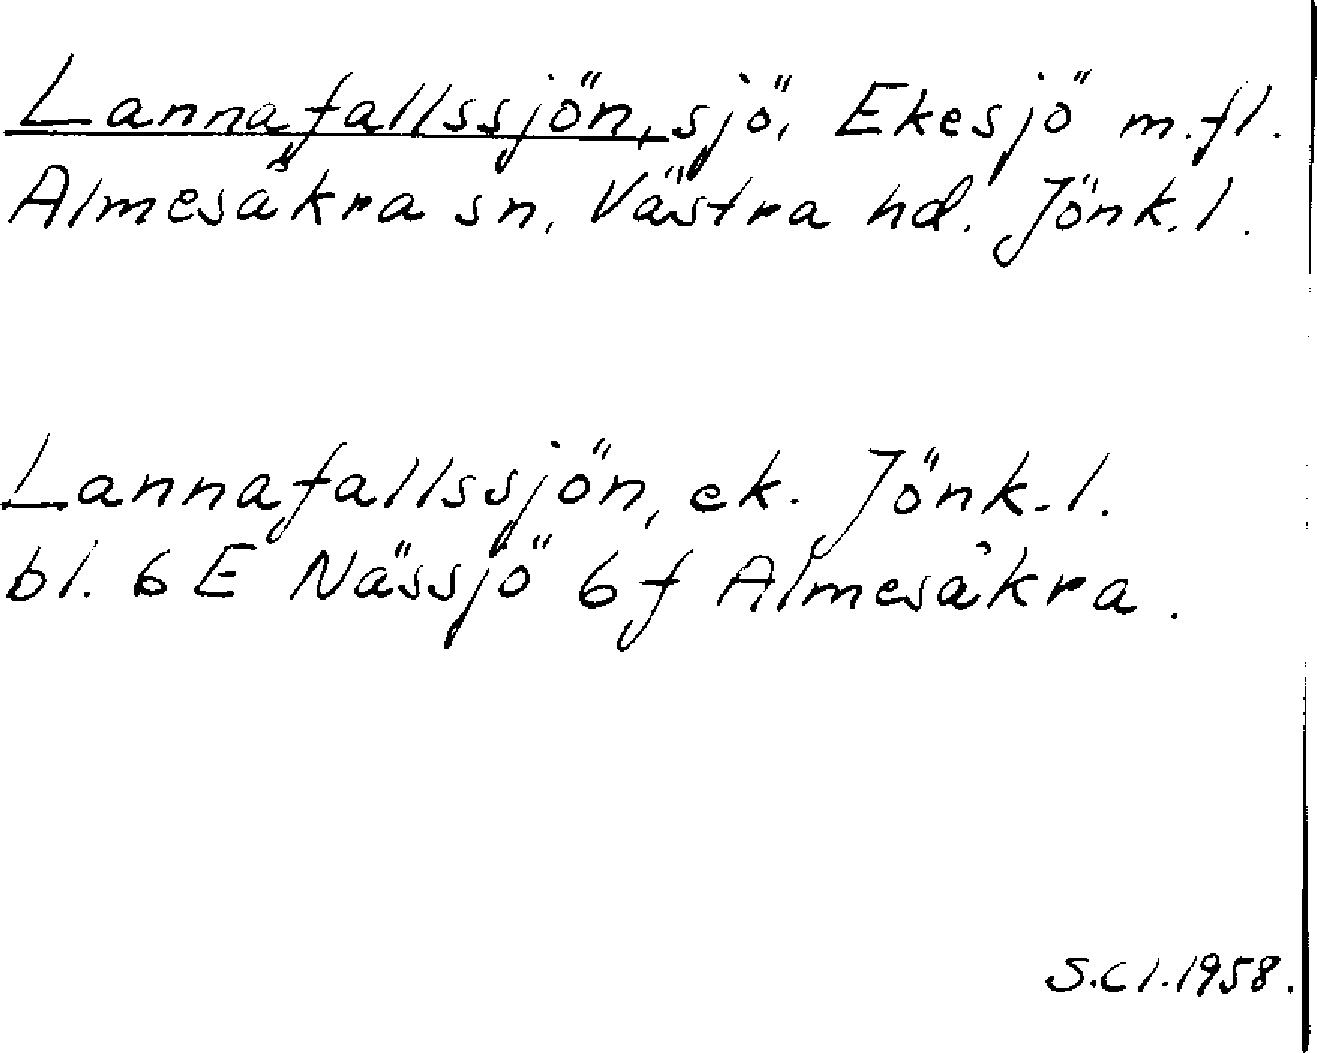 Lannafallssjön, sjö, Ekesjö m.fl.
Almesåkra sn, Västra hd. Jönk.l.
Lannafallssjön, ek. Jönk.l.
bl. 6 E Nässjö 6 f Almesåkra.
S.Cl.1958.